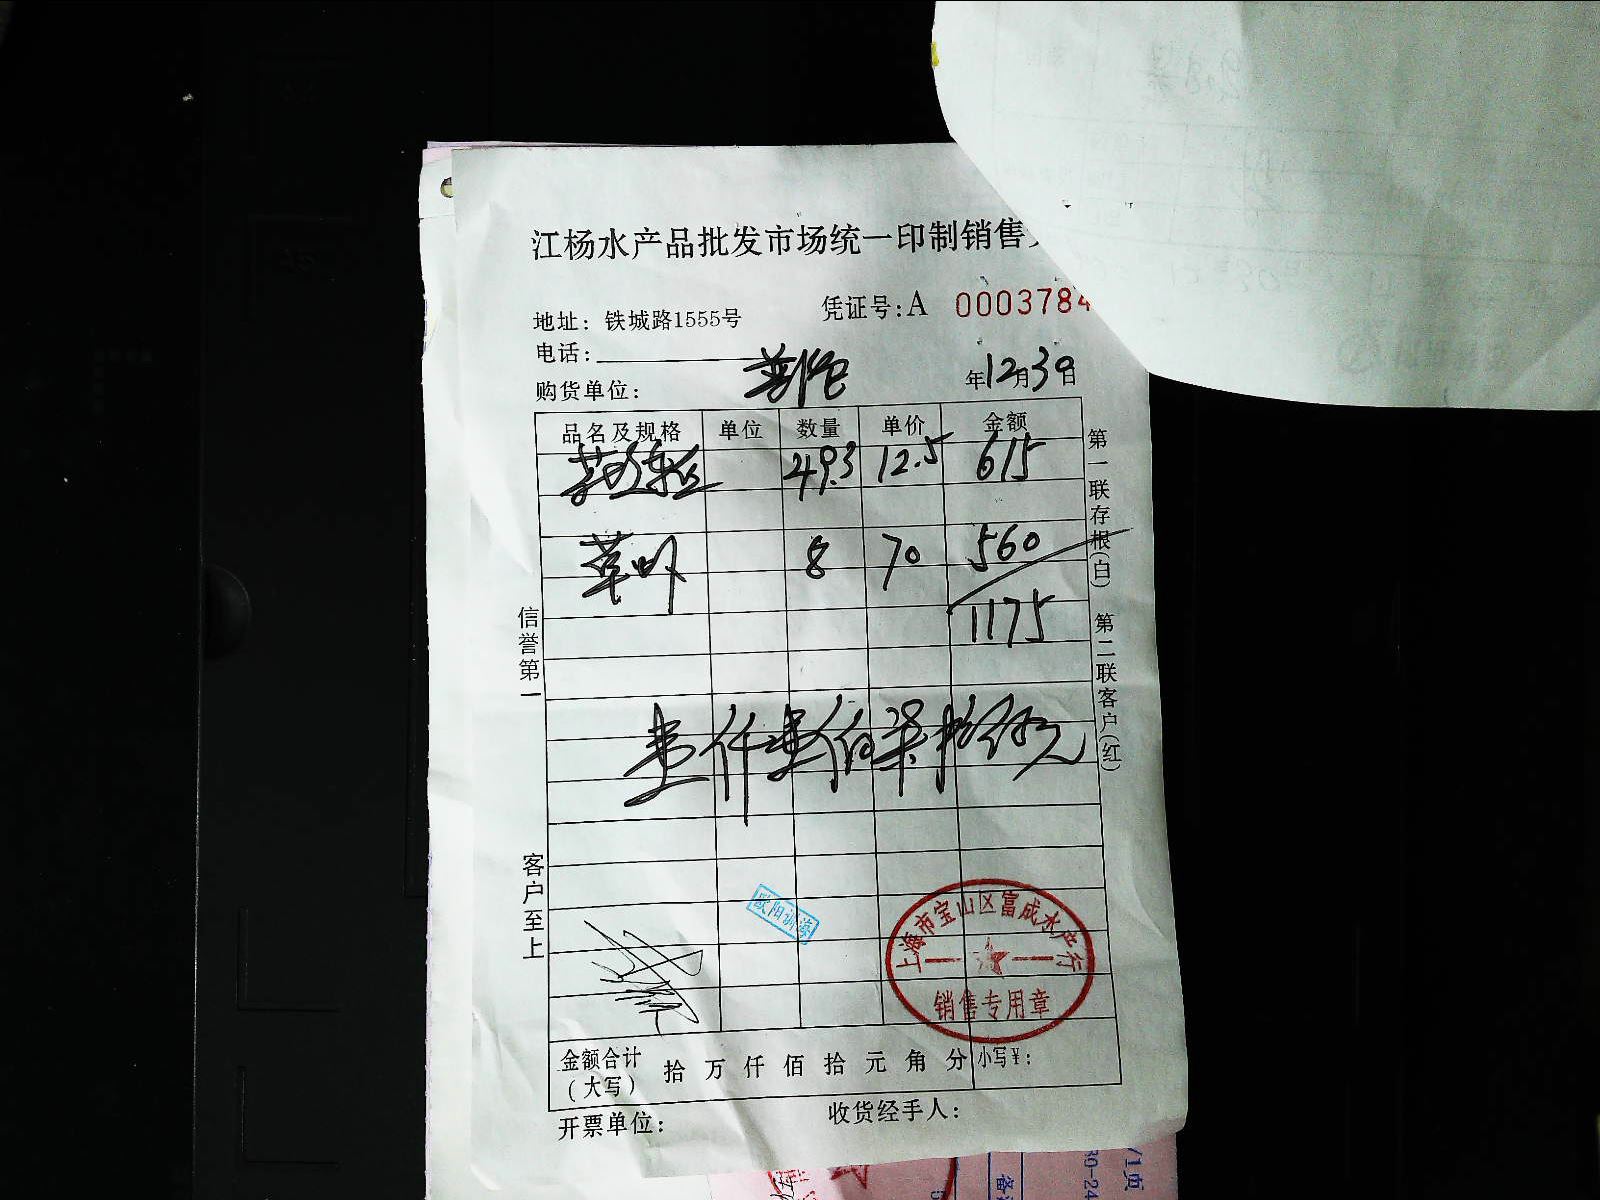 江杨水产品批发市场统一印制销售
地址：铁城路1555号
凭证号：A 0003784
电话：
购货单位：
年12月30日
品名及规格 单位 数量 单价 金额
49.3 12.5 615
草虾 8 70 560
1175
壹仟壹佰柒拾伍元
信誉第一
客户至上
第一联存根(白)
第二联客户(红)
上海市宝山区富成水产行
销售专用章
金额合计
(大写)
拾 万 仟 佰 拾 元 角 分 小写¥：
开票单位：
收货经手人：